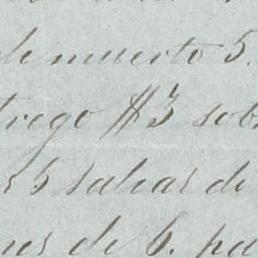 de muerto 5.
trego $3 sob
s 5 salvas de
nes de 6. pa